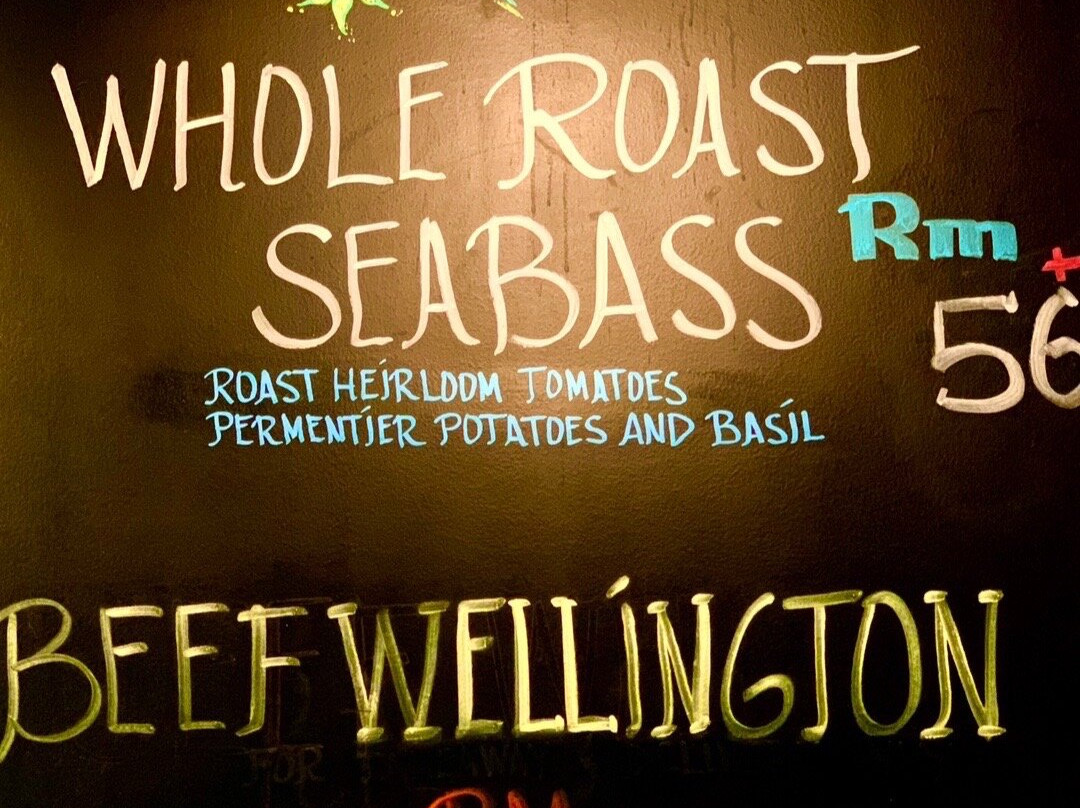 WHOLE ROAST
SEABASS
Rm
+
56
ROAST HEIRLOOM TOMATOES
PERMENTIER POTATOES AND BASIL
BEEF WELLINGTON
FOR